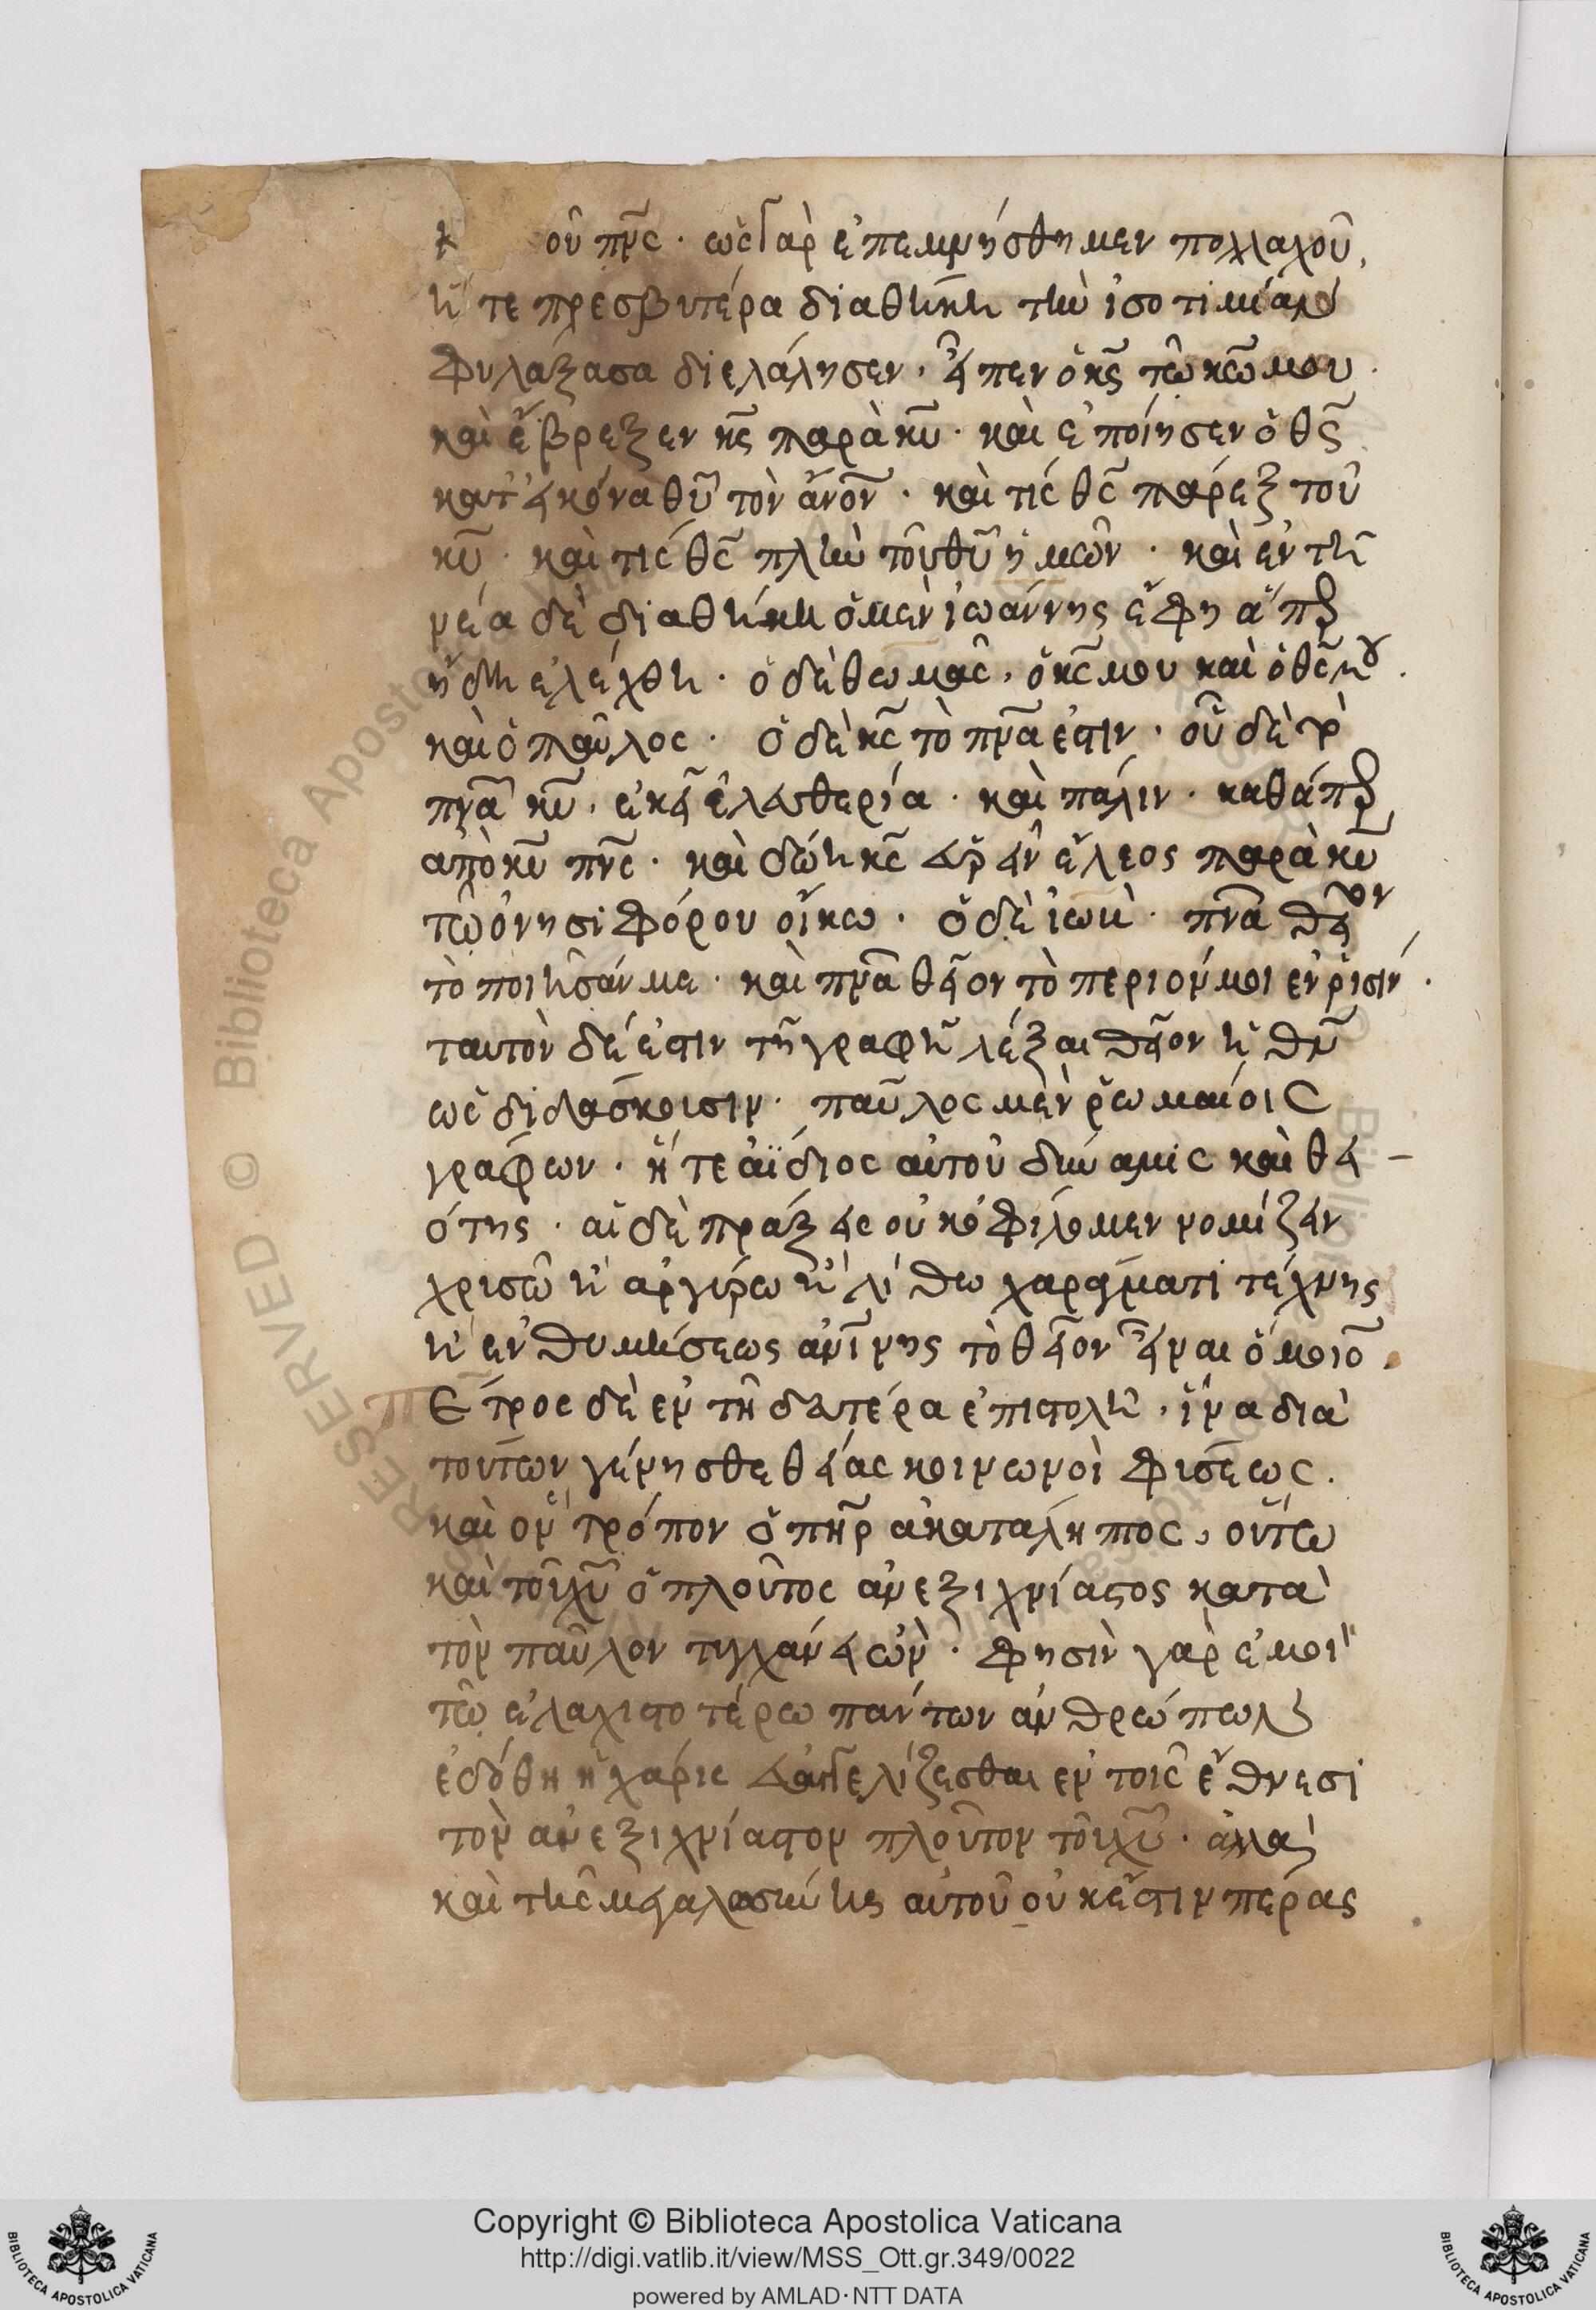 οῦ πν̅ς · ὡς γὰρ ἐπεμνήσθημεν πολλαχοῦ,
ἥ τε πρεσβυτέρα διαθήκη τὴν ἰσοτιμίαν
φυλάξασα διελάλησεν · εἶπεν ὁ κς̅ τῶ κω̅ μου ·
καὶ ἔβρεξεν κς̅ παρὰ κυ̅ · καὶ ἐποίησεν ὁ θς̅
κατ' εἰκόνα θυ̅ τὸν ἄνον̅ · καὶ τίς θς̅ πάρεξ τοῦ
κυ̅ · καὶ τίς θς̅ πλὴν τοῦ θυ̅ ἡμῶν · καὶ ἐν τῆ
νέα δὲ διαθήκη ὁ μὲν ἰωάννης ἔφη ἅπερ
ἤδη ἐλέχθη · ὁ δὲ θωμᾶς, ὁ κς̅ μου καὶ ὁ θς̅ μου ·
καὶ ὁ παῦλος · ὁ δὲ κς̅ τὸ πνα̅ ἐστιν · οὗ δὲ τὸ
πνα̅ κυ̅, ἐκεῖ ἐλευθερία · καὶ πάλιν · καθάπερ
ἀπὸ κυ̅ πνς̅ · καὶ δώη κς̅ εὑρεῖν ἔλεος παρὰ κυ̅
τῶ ὀνησιφόρου οἴκω · ὁ δὲ ἰὼβ · πνα̅ θεῖον
τὸ ποιῆσάν με · καὶ πνα̅ θεῖον τὸ περιόν μοι ἐν ῥισίν ·
ταυτὸν δέ ἐστιν τῆ γραφῆ λέξαι θεῖον ἢ θυ̅
ὡς διδάσκουσιν · παῦλος μὲν ῥωμαίοις
γράφων · ἥ τε ἀΐδιος αὐτοῦ δύναμις καὶ θει-
ότης · αἱ δὲ πράξεις οὐκ ὀφίλομεν νομίζειν
χρισῶ ἢ ἀργύρω ἢ λίθω χαράγματι τέχνης
ἢ ἐνθυμήσεως ἀνι̅νης τὸ θεῖον εἶναι ὅμοιον ·
Πέτρος δὲ ἐν τῆ δευτέρα ἐπιστολῆ, ἵνα διὰ
τούτων γένησθε θείας κοινωνοὶ φύσεως ·
καὶ ὃν τρόπον ὁ πηρ̅ ἀκατάληπτος, οὕτω
καὶ τοῦ χυ̅ ὁ πλοῦτος ἀνεξιχνίαστος κατὰ
τὸν παῦλον τυγχάνει ὤν · φησὶν γὰρ ἐμοὶ
τῶ ἐλαχιστοτέρω πάντων ἀνθρώπων
ἐδόθη ἡ χάρις εὐαγγελίζεσθαι ἐν τοῖς ἔθνεσι
τὸν ἀνεξιχνίαστον πλοῦτον τοῦ χυ̅ · ἀλλὰ
καὶ τῆς μεγαλοσύνης αὐτοῦ οὐκ ἔστιν πέρας
RESERVED © Biblioteca Apostolica Vaticana
BIBLIOTECA APOSTOLICA VATICANA
Copyright © Biblioteca Apostolica Vaticana
http://digi.vatlib.it/view/MSS_Ott.gr.349/0022
powered by AMLAD·NTT DATA
BIBLIOTECA APOSTOLICA VATICANA